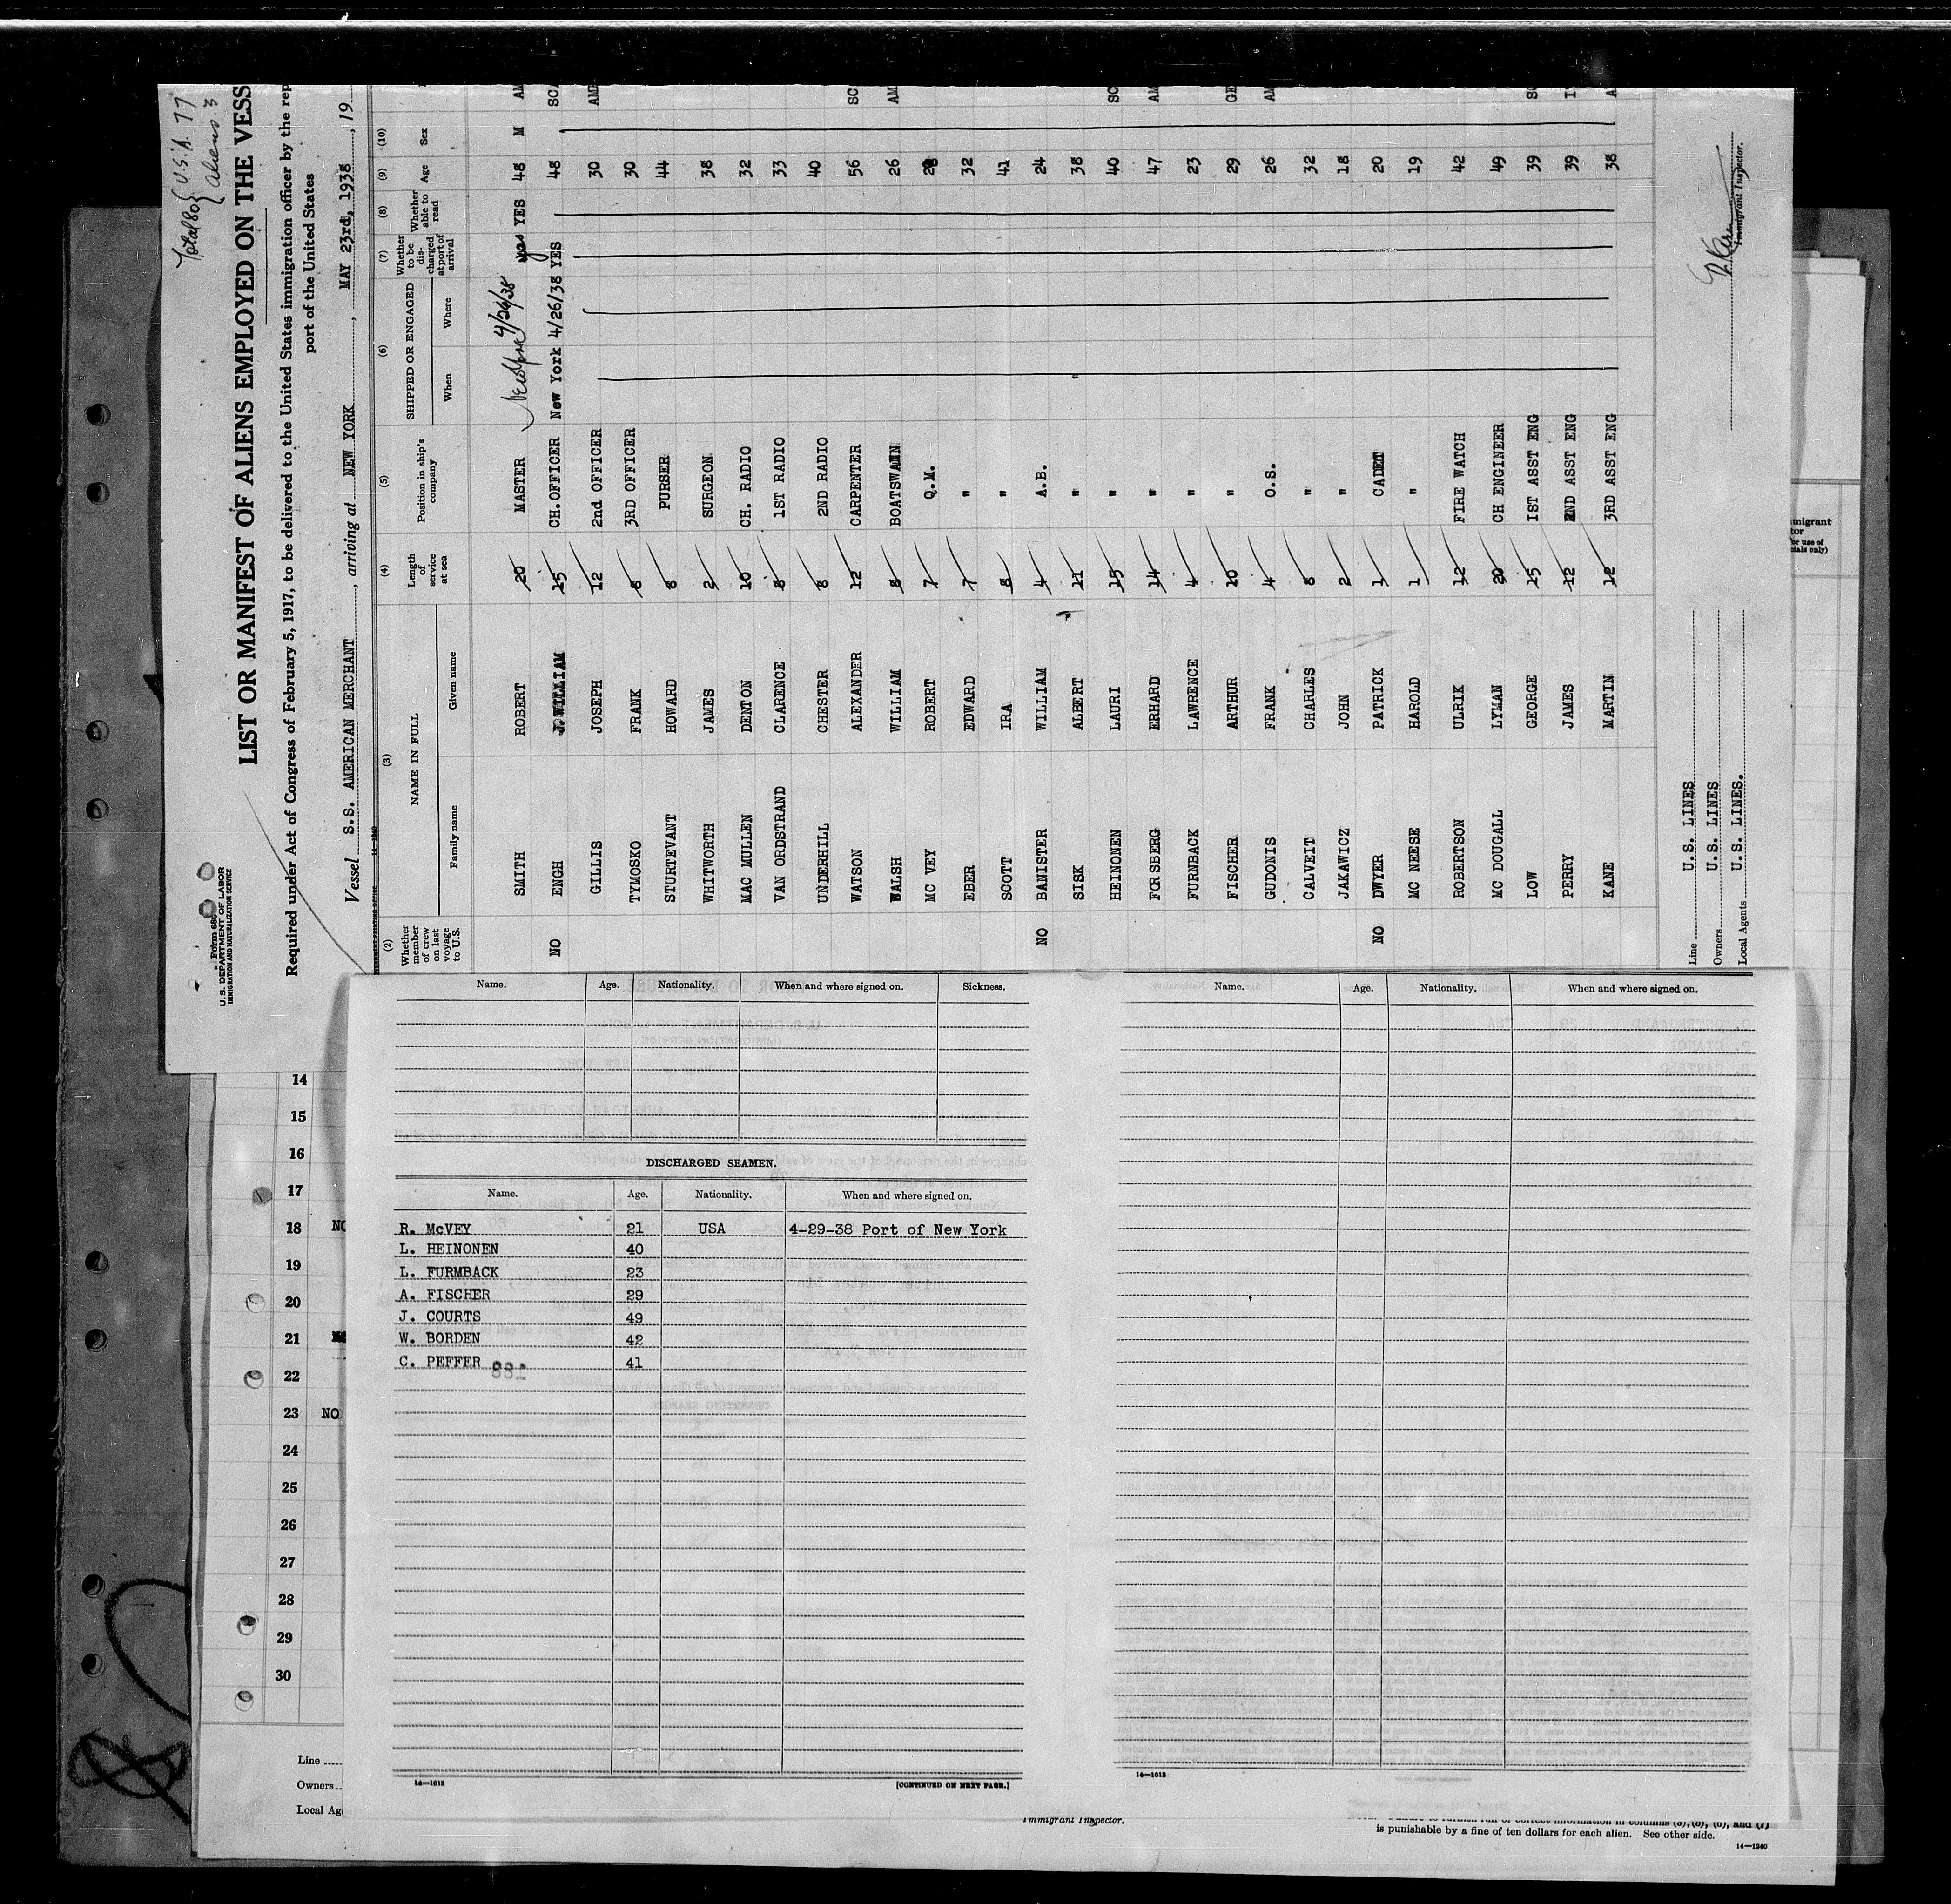 Total 80 { U.S.A. 77
{ Aliens 3
Form 680
U.S. DEPARTMENT OF LABOR
IMMIGRATION AND NATURALIZATION SERVICE
LIST OR MANIFEST OF ALIENS EMPLOYED ON THE VESS
Required under Act of Congress of February 5, 1917, to be delivered to the United States immigration officer by the rep
port of the United States
Vessel S.S. AMERICAN MERCHANT, arriving at NEW YORK, MAY 23rd, 1938, 19
(2) (3) (4) (5) (6) (7) (8) (9) (10)
Whether member of crew on last voyage to U.S. NAME IN FULL Family name Given name Length of service at sea Position in ship's company SHIPPED OR ENGAGED When Where Whether to be discharged at port of arrival Whether able to read Age Sex
SMITH ROBERT 20 MASTER New York 4/26/38 yes YES 48 M AM
NO ENGH J. WILLIAM 15 CH.OFFICER New York 4/26/38 YES 48 SCA
GILLIS JOSEPH 12 2nd OFFICER 30 AME
TYMOSKO FRANK 8 3RD OFFICER 30
STURTEVANT HOWARD 8 PURSER 44
WHITWORTH JAMES 2 SURGEON 38
MAC MULLEN DENTON 10 CH. RADIO 32
VAN ORDSTRAND CLARENCE 8 1ST RADIO 33
UNDERHILL CHESTER 8 2ND RADIO 40
WATSON ALEXANDER 12 CARPENTER 56 SC
WALSH WILLIAM 8 BOATSWAIN 26 AM
MC VEY ROBERT 7 Q.M.
EBER EDWARD 7 " 32
SCOTT IRA 8 " 41
NO BANISTER WILLIAM 4 A.B. 24
SISK ALBERT 11 " 38
HEINONEN LAURI 15 " 40 SC
FORSBERG ERHARD 14 " 47 AM
FURNBACK LAWRENCE 4 " 23
FISCHER ARTHUR 10 " 29 GE
GUDONIS FRANK 4 O.S. 26 AM
CALVEIT CHARLES 8 " 32
JAKAWICZ JOHN 2 " 18
NO DWYER PATRICK 1 CADET 20
MC NEESE HAROLD 1 " 19
ROBERTSON ULRIK 12 FIRE WATCH 42
MC DOUGALL LYMAN 20 CH ENGINEER 49
LOW GEORGE 15 1ST ASST ENG 39
PERRY JAMES 12 2ND ASST ENG 39
KANE MARTIN 12 3RD ASST ENG 38
Line U.S. LINES
Owners U.S. LINES
Local Agents U.S. LINES.
Immigrant Inspector.
Name. Age. Nationality. When and where signed on. Sickness.
DISCHARGED SEAMEN.
Name. Age. Nationality. When and where signed on.
R. McVEY 21 USA 4-29-38 Port of New York
L. HEINONEN 40
L. FURMBACK 23
A. FISCHER 29
J. COURTS 49
W. BORDEN 42
C. PEFFER 41
14—1613
[CONTINUED ON NEXT PAGE.]
Name. Age. Nationality. When and where signed on.
14—1613
14
15
16
17
18 NO
19
20
21
22
23 NO
24
25
26
27
28
29
30
Line
Owners
Local Ag
Immigrant Inspector.
is punishable by a fine of ten dollars for each alien. See other side.
14—1240